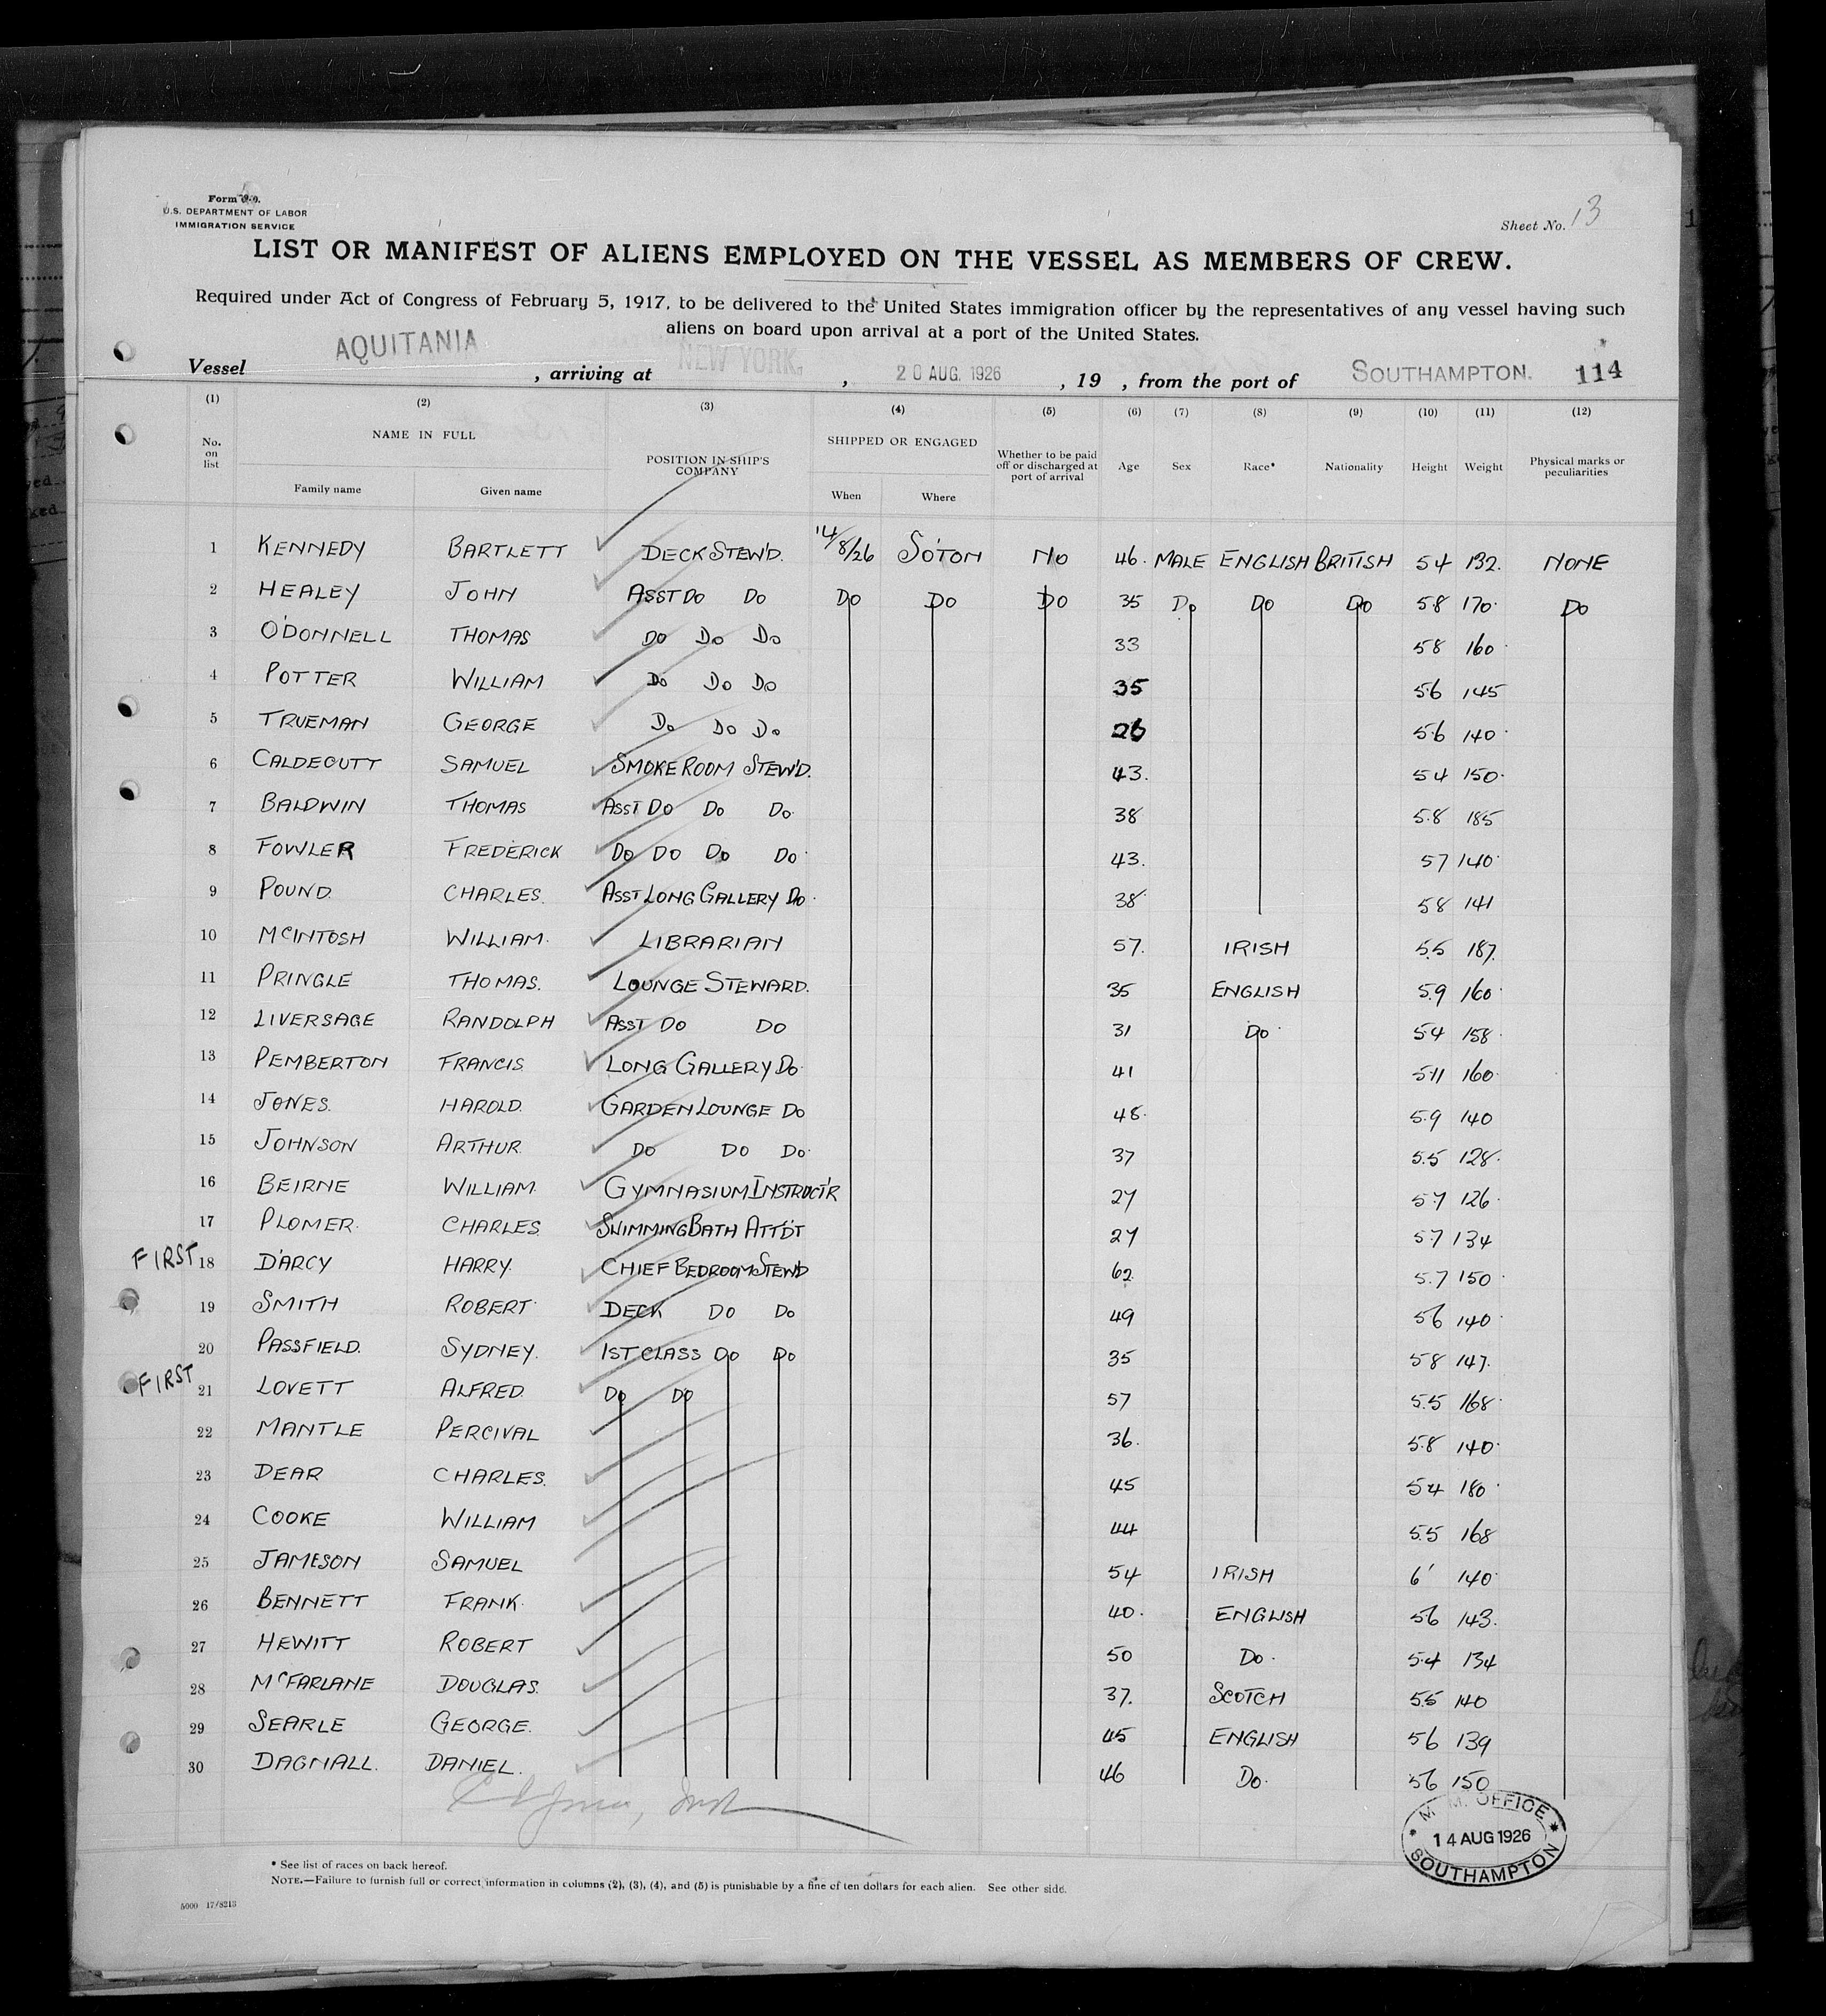 Form 7-0.
U.S. DEPARTMENT OF LABOR
IMMIGRATION SERVICE
Sheet No. 13
LIST OR MANIFEST OF ALIENS EMPLOYED ON THE VESSEL AS MEMBERS OF CREW.
Required under Act of Congress of February 5, 1917, to be delivered to the United States immigration officer by the representatives of any vessel having such
aliens on board upon arrival at a port of the United States.
Vessel AQUITANIA, arriving at NEW YORK, 20 AUG. 1926, 19 , from the port of SOUTHAMPTON. 114
(1) (2) (3) (4) (5) (6) (7) (8) (9) (10) (11) (12)
No. on list NAME IN FULL POSITION IN SHIP'S COMPANY SHIPPED OR ENGAGED Whether to be paid off or discharged at port of arrival Age Sex Race* Nationality Height Weight Physical marks or peculiarities
Family name Given name When Where
1 KENNEDY BARTLETT DECK STEW'D. 14/8/26 SO'TON NO 46. MALE ENGLISH BRITISH 5 4 132. NONE
2 HEALEY JOHN ASST DO DO DO DO DO 35 DO DO DO 5.8 170. DO
3 O'DONNELL THOMAS DO DO DO 33 5 8 160.
4 POTTER WILLIAM DO DO DO 35 5.6 145
5 TRUEMAN GEORGE DO DO DO 26 5.6 140.
6 CALDECUTT SAMUEL SMOKE ROOM STEW'D. 43. 5 4 150.
7 BALDWIN THOMAS ASST DO DO DO. 38 5.8 185
8 FOWLER FREDERICK DO DO DO DO. 43. 5 7 140.
9 POUND. CHARLES. ASST LONG GALLERY DO. 38 5 8 141
10 McINTOSH WILLIAM. LIBRARIAN 57. IRISH 5.5 187.
11 PRINGLE THOMAS. LOUNGE STEWARD. 35 ENGLISH 5.9 160.
12 LIVERSAGE RANDOLPH ASST DO DO 31 DO. 5 4 158.
13 PEMBERTON FRANCIS LONG GALLERY DO. 41 5 11 160.
14 JONES. HAROLD. GARDEN LOUNGE DO 48. 5.9 140
15 JOHNSON ARTHUR DO DO DO. 37 5.5 128.
16 BEIRNE WILLIAM. GYMNASIUM INSTRUCT'R 27 5.7 126.
17 PLOMER. CHARLES. SWIMMING BATH ATT'D'T 27 5.7 134
FIRST 18 D'ARCY HARRY. CHIEF BEDROOM STEWD 62. 5.7 150
19 SMITH ROBERT. DECK DO DO 49 5 6 140.
20 PASSFIELD. SYDNEY. 1ST CLASS DO DO 35 5 8 147.
FIRST 21 LOVETT ALFRED. DO DO 57 5.5 168.
22 MANTLE PERCIVAL 36. 5.8 140.
23 DEAR CHARLES. 45 5 4 180.
24 COOKE WILLIAM 44 5.5 168
25 JAMESON SAMUEL 54 IRISH 6' 140.
26 BENNETT FRANK. 40. ENGLISH 5.6 143.
27 HEWITT ROBERT 50 DO. 5.4 134
28 McFARLANE DOUGLAS. 37. SCOTCH 5.5 140
29 SEARLE GEORGE. 45 ENGLISH 5 6 139
30 DAGNALL. DANIEL. 46 DO. 5 6 150
M. M. OFFICE
14 AUG 1926
SOUTHAMPTON
* See list of races on back hereof.
NOTE.—Failure to furnish full or correct information in columns (2), (3), (4), and (5) is punishable by a fine of ten dollars for each alien. See other side.
5000 17/8213